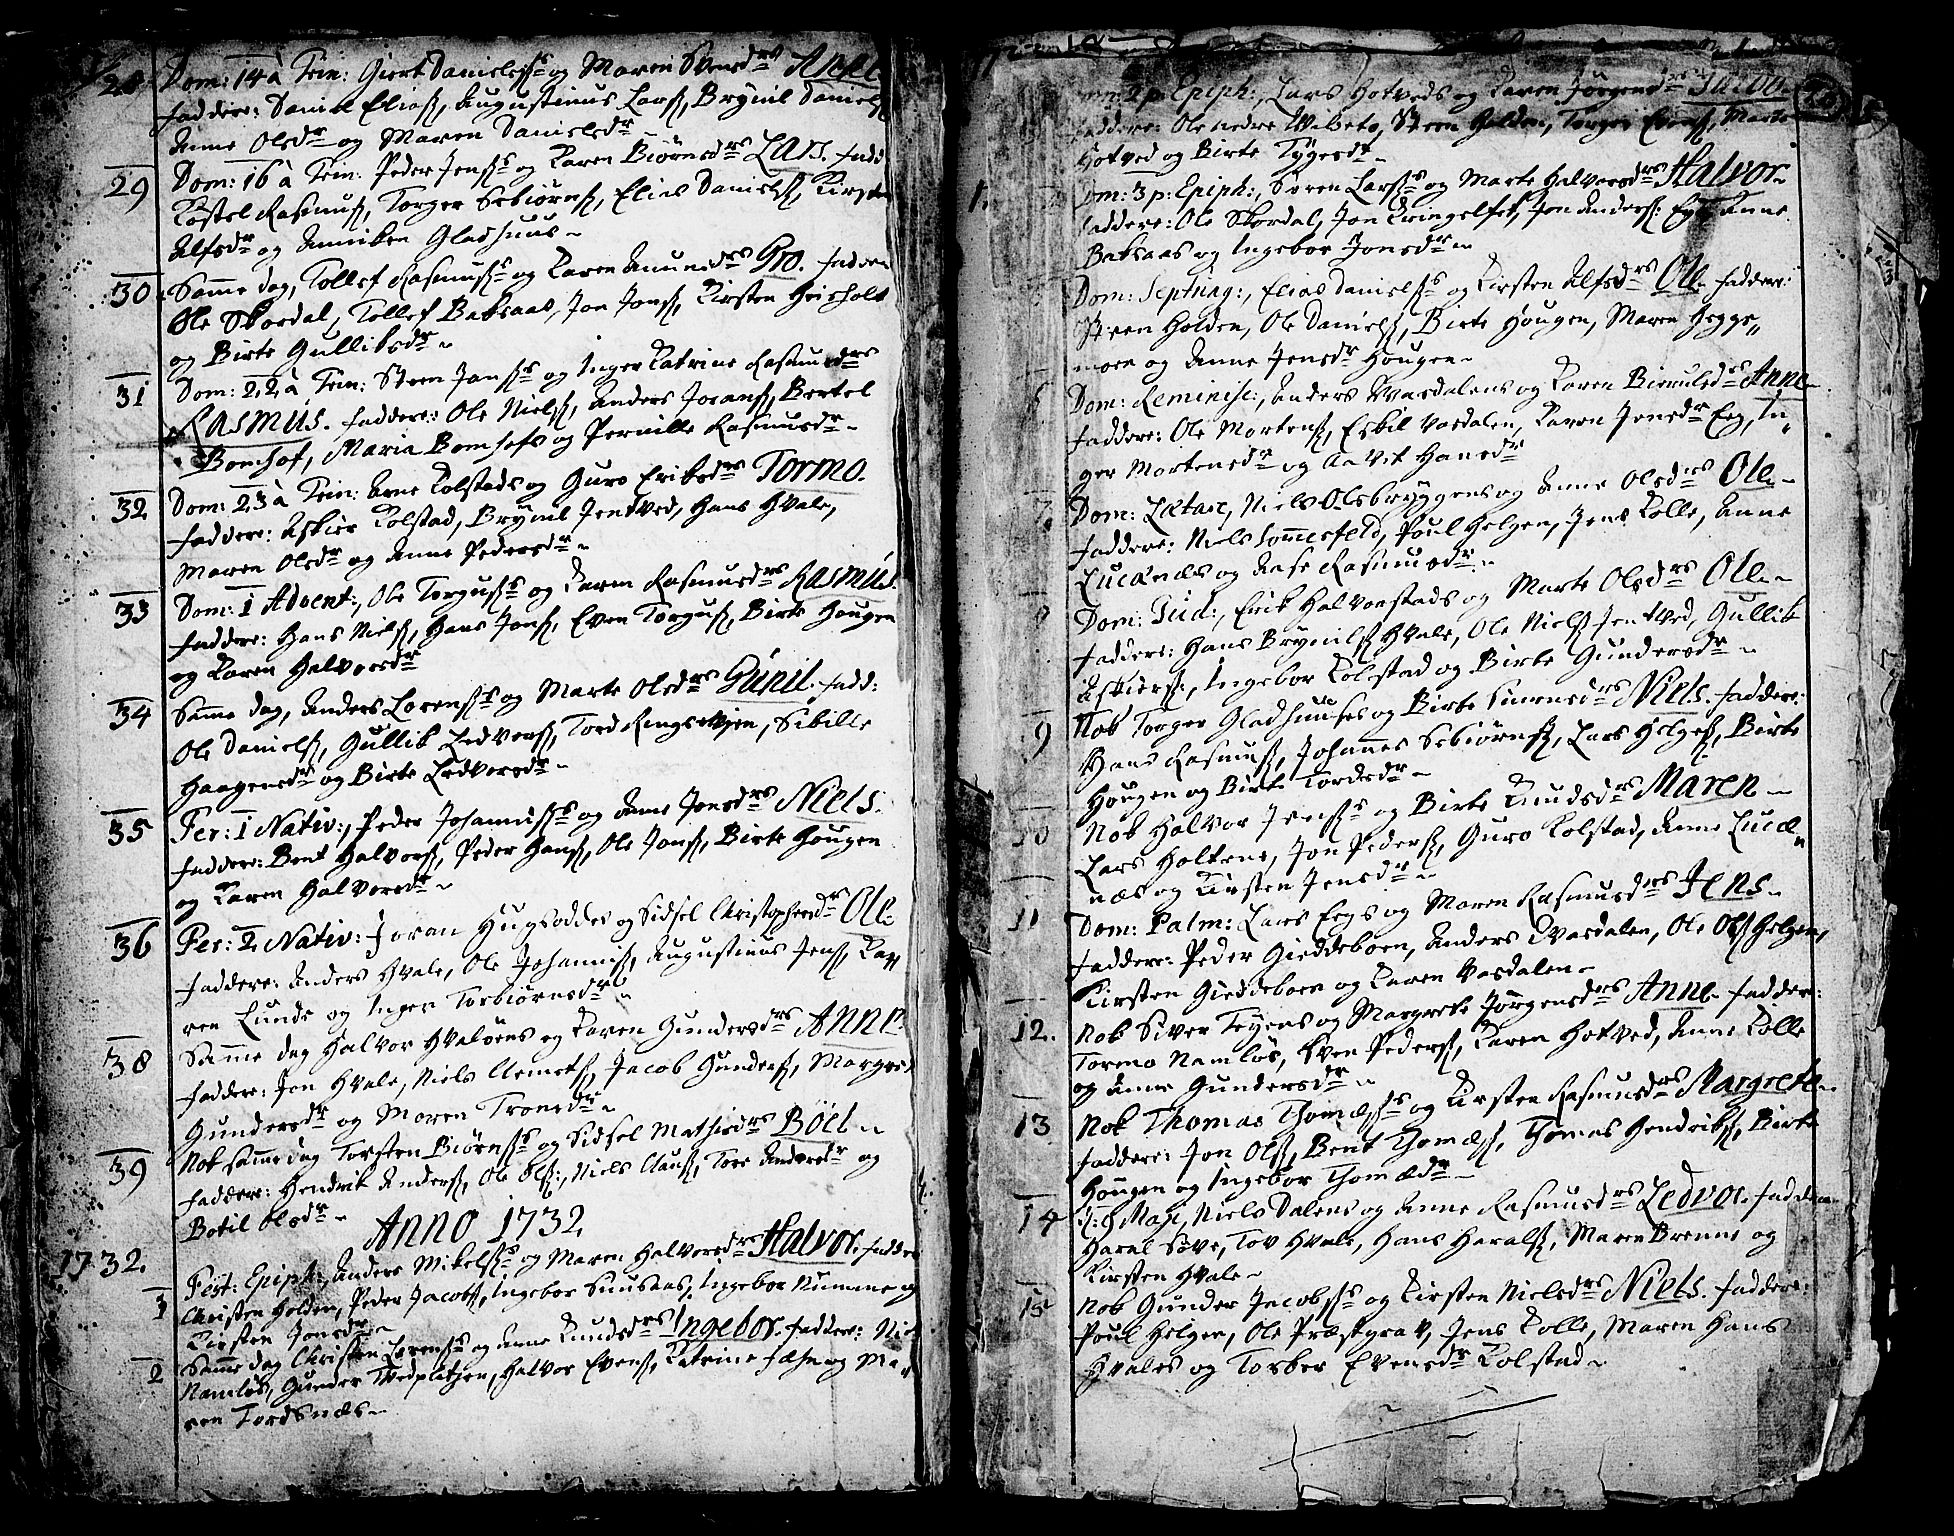 28 Dom: 14 à Trin: Giert Danielss: og Maren Svensdrs Anne
faddere: Daniel Elias, Augustinus Lars, Brynil Daniels
Anne Olsdr og Maren Danielsdr
29 Dom: 16 à Trin: Peder Jenss og Karen Biörnsdrs Lars. fadd
Kastel Rasmus, Torger Sebiörns, Elias Daniels, Kirsten
Alfsdr og Anniken Gladhuus
30 Samme dag, Tollef Rasmuss og Karen Amunsdrs Gro. fadder
Ole Skordal, Tollef Baksaas, Jon Jons, Kirsten Grisholt
og Birte Gulliksdr
31 Dom: 22 à Trin: Steen Janss og Inger Katrine Rasmusdrs
Rasmus. faddere: Ole Niels, Anders Jorans, Bertel
Bomhof, Maria Bomhofs og Pernille Rasmusdr
32 Dom: 23 à Trin: Arne Kolstads og Guro Eriksdrs Tormo.
faddere: Askier Kolstad, Brynil Jentved, Hans Hvale,
Maren Olsdr og Anne Pedersdr
33 Dom: 1 Advent:, Ole Torguss og Karen Rasmusdrs Rasmus.
faddere: Hans Niels, Hans Jons, Even Torgus, Birte Hougen
og Karen Halvorsdr
34 Samme dag, Anders Lorenss og Marte Olsdrs Gunil. fadd:
Ole Daniels, Gullik Ledvors, Tord Ringsevjen, Sibille
Haagensdr og Birte Ledvorsdr
35 Fer: 1 Nativ:, Peder Johanniss og Anne Jensdrs Niels.
faddere: Bent Halvors, Peder Hans, Ole Jons, Birte Hougen
og Karen Halvorsdr
36 Fer: 2 Nativ: Joran Hugsoddes og Sidsel Christophersdr Ole.
faddere: Anders Hvale, Ole Johannis, Augustinus Jens, Ka,,
ren Lunde og Inger Torbiörnsdr
38 Samme dag Halvor Hvalöens og Karen Gundersdrs Anne.
faddere: Jon Hvale, Niels Clemets, Jacob Gunders, Margret
Gundersdr og Maren Tronsdr
39 Nok samme dag Torsten Biörnss og Sidsel Mathisdrs Böel
faddere: Hendrik Anders, Ole Ols:, Niels Claus, Tore Andersdr og
Botil Olsdr
Anno 1732
1732.
1 Fest: Epiph:, Anders Mikelss og Maren Halvorsdrs Halvor. fadder
Christen Holden, Peder Jacobs, Ingebor Suusaas, Ingebor Numme og
Kirsten Jonsdr
2 Samme dag Christen Lorenss og Anne Knudsdrs Ingebor. faddere: Nie
Namlös, Gunder Tvedplatsen, Halvor Evens, Katrine og Ma,,
ren Tordsnæs
Dom: 2 p: Epiph:, Lars Hotveds og Karen Jörgensdrs Jacob.
faddere: Ole nedre Vibeto, Steen Holden, Torger Evens, Marte
Hotved og Birte Tygesdr
Dom: 3 p: Epiph:, Sören Larss og Marte Halvorsdrs Halvor.
faddere: Ole Skordal, Jon Kringelfet, Jon Anders: Eye, Anne
Baksaas og Ingebor Jonsdr
Dom: Septuag:, Elias Danielss og Kirsten Alfsdrs Ole. faddere:
Steen Holden, Ole Daniels, Birte Hougen, Maren Hegge,,
moen og Anne Jensdr Hougen
6 Dom: Reminisc:, Anders Vasdalens og Karen Bieruldsdrs Anne.
faddere: Ole Mortens, Eskil Vasdalen, Karen Jensdr Eeg, In,,
ger Mortensdr og Aavit Hansdr
7 Dom: Lætare, Niels Olsbryggens og Anne Olsdrs Ole.
faddere: Niels Sommesfeld, Poul Helgen, Jens Kolle, Anne
Lucænæs og Aase Rasmusdr
8 Dom: Jud:, Erik Halvorstads og Marte Olsdrs Ole.
faddere: Hans Brynils Hvale, Ole Niels Jentved, Gullik
Askiers, Ingebor Kolstad og Birte Gundersdr
9 Nok Torger Gladhuuses og Birte Simensdrs Niels. faddere:
Hans Rasmus, Johannes Sebiörns, Lars Helges, Birte
Hougen og Birte Tordsdr
10 Nok Halvor Jenss og Birte Knudsdrs Maren
Lars Holtene, Jon Peders, Guro Kolstad, Anne Lucæ,,
næs og Kirsten Jensdr
11 Dom: Palm: Lars Eegs og Maren Rasmusdrs Jens.
faddere: Peder Gieddeboen, Anders Vasdalen, Ole Ols Helgen,
Kirsten Gieddeboen og Karen Vasdalen
12. Nok Siver Teyens og Margrete Jörgensdrs Anne. faddere:
Tormo Namlös, Even Peders, Karen Hotved, Anne Kolle
og Anne Gundersdr
13 Nok Thomas Thomæss og Kirsten Rasmusdrs Margrete.
faddere: Jon Ols, Bent Thomæs, Thomas Hendriks, Birte
Hougen og Ingebor Thomædr
14 D: 8 Maji, Niels Dalens og Anne Rasmusdrs Ledvor. faddere
Haral Söve, Tov Hvale, Hans Harals, Maren Brenne og
Kirsten Hvale
15 Nok Gunder Jacobss og Kirsten Nielsdrs Niels. faddere:
Poul Helgen, Ole Præstgrav, Jens Kolle, Maren Hans
Hvales og Torbor Evensdr Kolstad